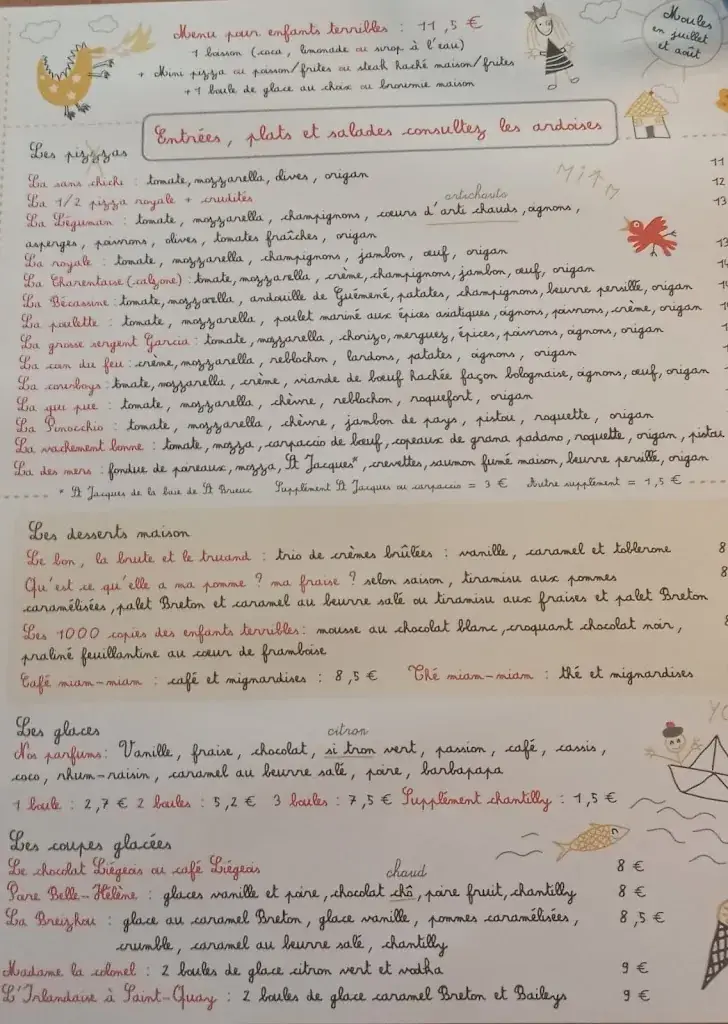 Menu pour enfants terribles : 11,5 €
1 boisson (coca, limonade ou sirop à l'eau)
+ Mini pizza ou poisson/frites ou steak haché maison/frites
+ 1 boule de glace au choix ou brownie maison
Moules
en juillet
et août
Entrées, plats et salades consultez les ardoises
Les pizzzas
Miam
La sans chichi : tomate, mozzarella, olives, origan 11
La 1/2 pizza royale + crudités 12
artichauts
La Léguman : tomate, mozzarella, champignons, coeurs d'arti chauds, oignons, 13
asperges, poivrons, olives, tomates fraîches, origan
La royale : tomate, mozzarella, champignons, jambon, oeuf, origan 13
La Charentaise (calzone) : tomate, mozzarella, crème, champignons, jambon, oeuf, origan
La Bécassine : tomate, mozzarella, andouille de Guémené, patates, champignons, beurre persillé, origan
La poulette : tomate, mozzarella, poulet mariné aux épices asiatiques, oignons, poivrons, crème, origan
La grosse sergent Garcia : tomate, mozzarella, chorizo, merguez, épices, poivrons, oignons, origan
La can du feu : crème, mozzarella, reblochon, lardons, patates, oignons, origan
La cowboys : tomate, mozzarella, crème, viande de boeuf hachée façon bolognaise, oignons, oeuf, origan
La qui pue : tomate, mozzarella, chèvre, reblochon, roquefort, origan
La Pinocchio : tomate, mozzarella, chèvre, jambon de pays, pistou, roquette, origan
La vachement bonne : tomate, mozza, carpaccio de boeuf, copeaux de grana padano, roquette, origan, pistou
La des mers : fondue de poireaux, mozza, St Jacques*, crevettes, saumon fumé maison, beurre persillé, origan
* St Jacques de la baie de St Brieuc Supplément St Jacques ou carpaccio = 3 € Autre supplément = 1,5 €
Les desserts maison
Le bon, la brute et le truand : trio de crèmes brûlées : vanille, caramel et toblerone 8
Qu'est ce qu'elle a ma pomme ? ma fraise ? selon saison, tiramisu aux pommes 8
caramélisées, palet Breton et caramel au beurre salé ou tiramisu aux fraises et palet Breton
Les 1000 copies des enfants terribles : mousse au chocolat blanc, croquant chocolat noir, 8
praliné feuillantine au coeur de framboise
Café miam-miam : café et mignardises : 8,5 € Thé miam-miam : thé et mignardises
Les glaces
citron
Nos parfums : Vanille, fraise, chocolat, si tron vert, passion, café, cassis,
coco, rhum-raisin, caramel au beurre salé, poire, barbapapa
1 boule : 2,7 € 2 boules : 5,2 € 3 boules : 7,5 € Supplément chantilly : 1,5 €
Les coupes glacées
Le chocolat Liégeois ou café Liégeois 8 €
chaud
Poire Belle-Hélène : glaces vanille et poire, chocolat chô, poire fruit, chantilly 8 €
La Breizhou : glace au caramel Breton, glace vanille, pommes caramélisées, 8,5 €
crumble, caramel au beurre salé, chantilly
Madame la colonel : 2 boules de glace citron vert et vodka 9 €
L'Irlandaise à Saint-Quay : 2 boules de glace caramel Breton et Baileys 9 €